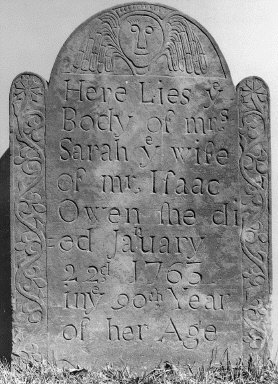 Here Lies yᵉ
Body of mrs
Sarah yᵉ wife
of mr, Isaac
Owen she di
ed Jaⁿuary
22d 1765
in yᵉ 90th Year
of her Age